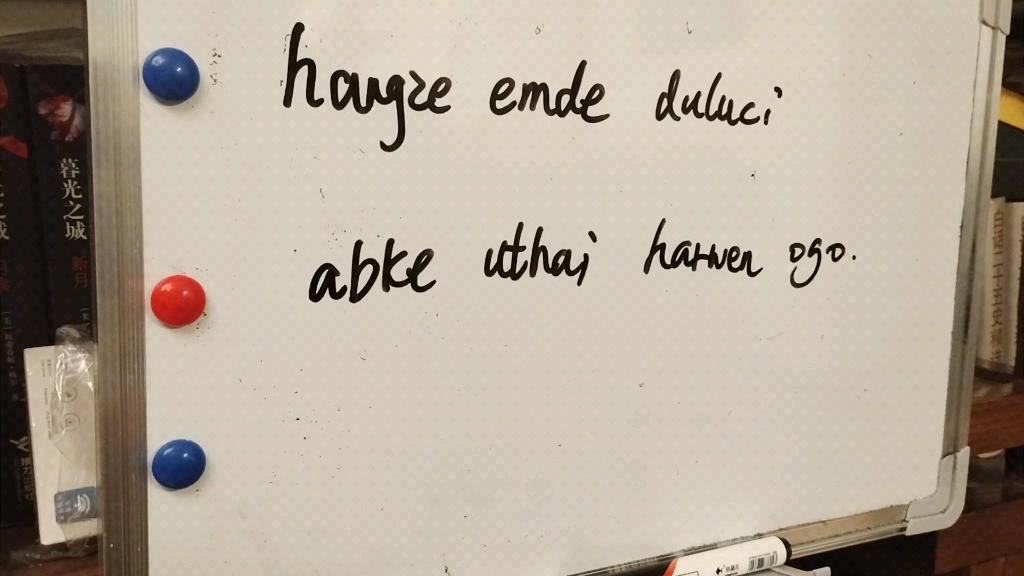 hangze emde duluci
abke uthai harwen ogo.
暮光之城
新月